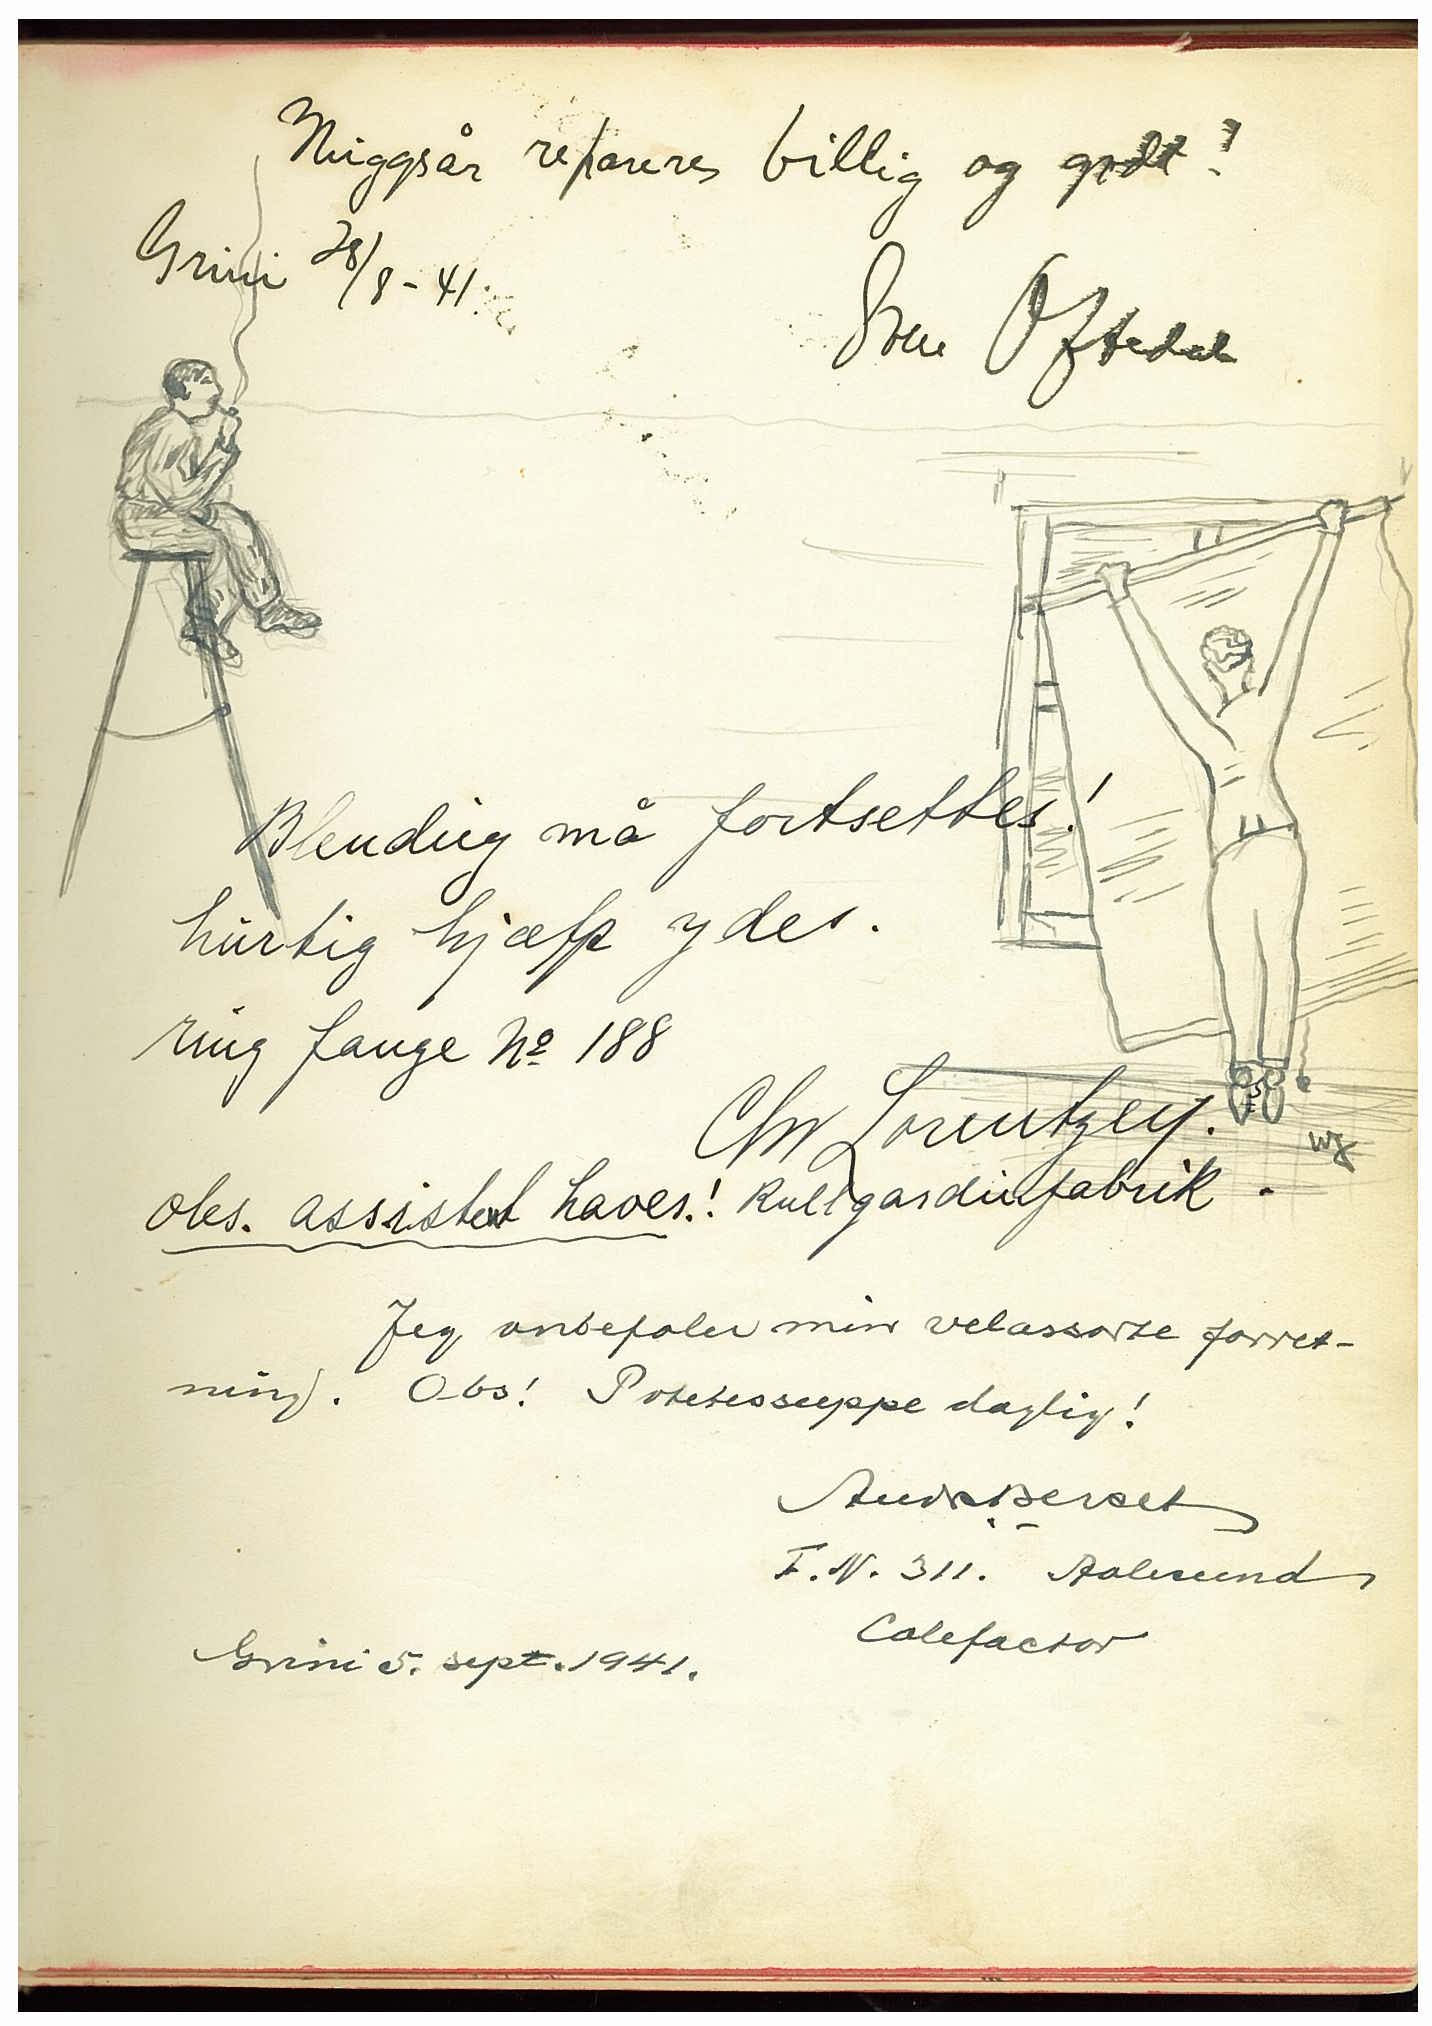 Huggsår repareres billig og godt!
Grini 28/8-41.
Sven Oftedal
Blending må fortsettes!
hurtig hjælp ydes.
ring fange No 188
Chr Lorentzen.
obs. assistent haves!! Rullgardinfabrik.
WJ
Jeg anbefaler min velassorte forret-
ning. Obs! Potetessuppe daglig!
Berset
F.N. 311. Aalesund
Calefactor
Grini 5. sept. 1941.